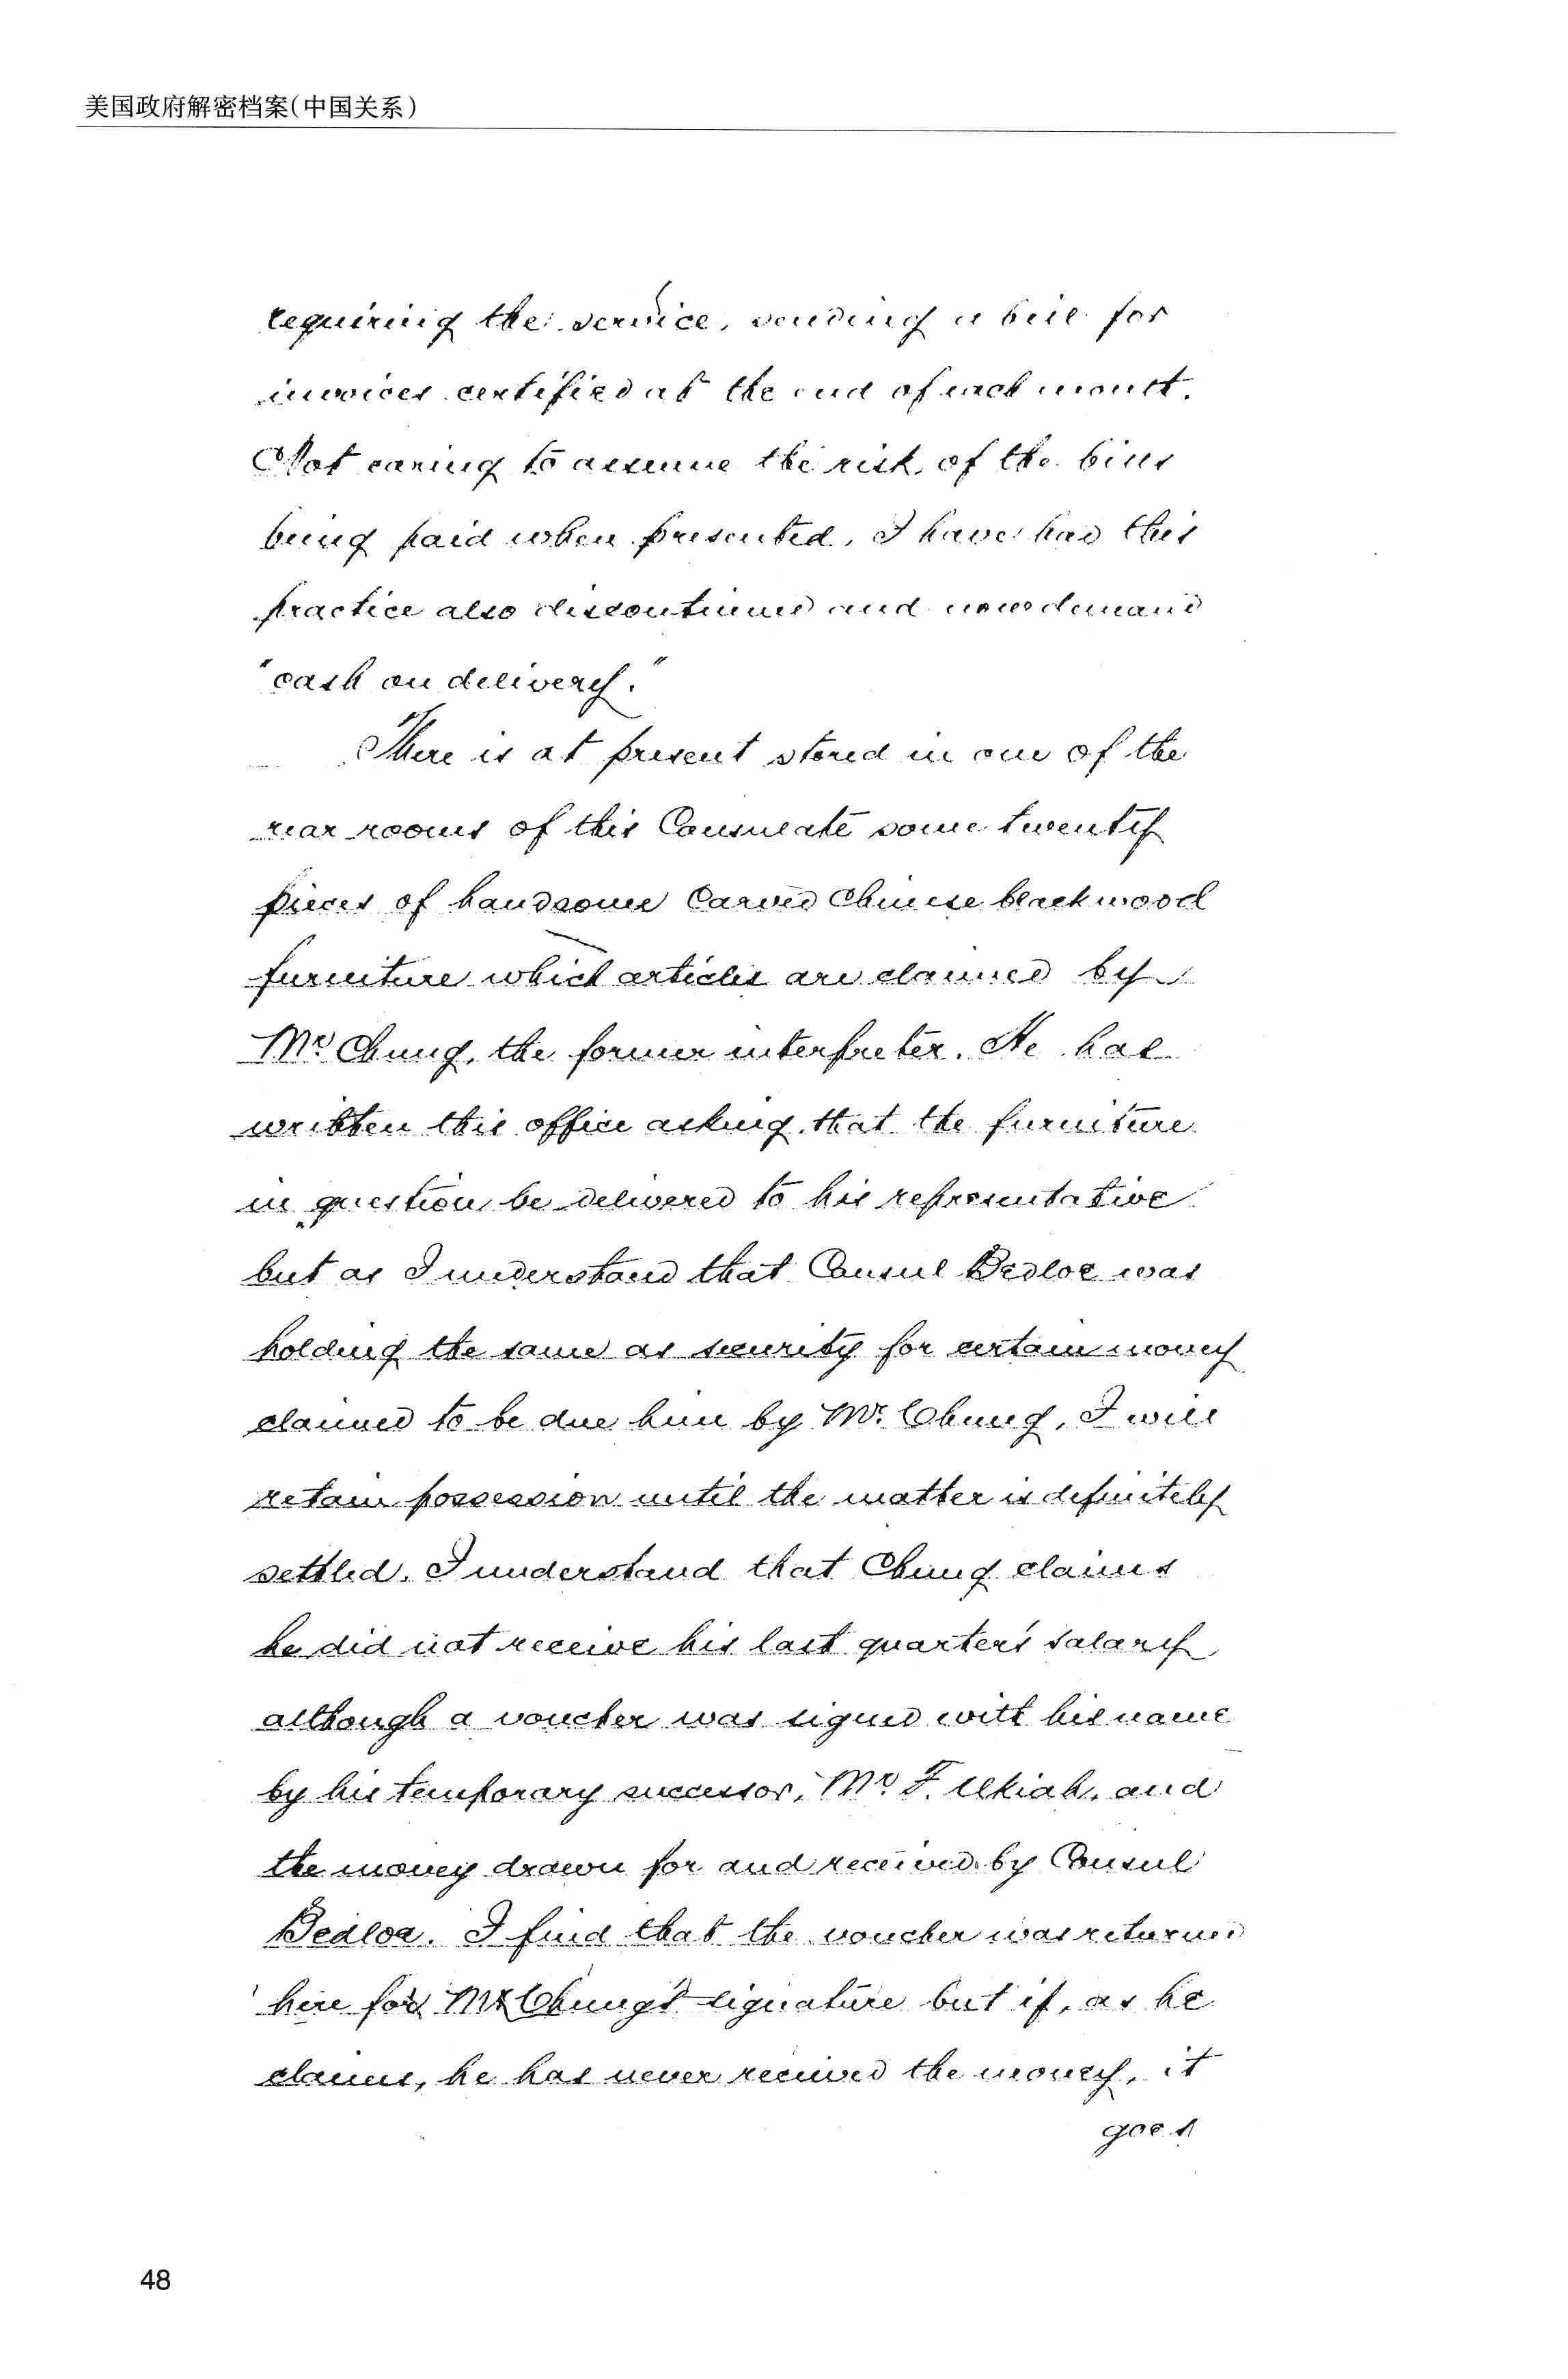 美国政府解密档案(中国关系)
requiring the service, sending a bill for
invoices certified at the end of each month.
Not caring to assume the risk of the bills
being paid when presented, I have had this
practice also discontinued and now demand
"cash on delivery."
There is at present stored in one of the
rear rooms of this Consulate some twenty
pieces of handsome Carved Chinese blackwood
furniture which articles are claimed by
Mr Chung, the former interpreter. He has
written this office asking that the furniture
in question be delivered to his representative
but as I understand that Consul Bedloe was
holding the same as security for certain money
claimed to be due him by Mr. Chung, I will
retain possession until the matter is definitely
settled. I understand that Chung claims
he did not receive his last quarter's salary
although a voucher was signed with his name
by his temporary successor, Mr. F. Ukiah, and
the money drawn for and received by Consul
Bedloe. I find that the voucher was returned
here for Mr Chung's signature but if, as he
claims, he has never received the money, it
goes
48